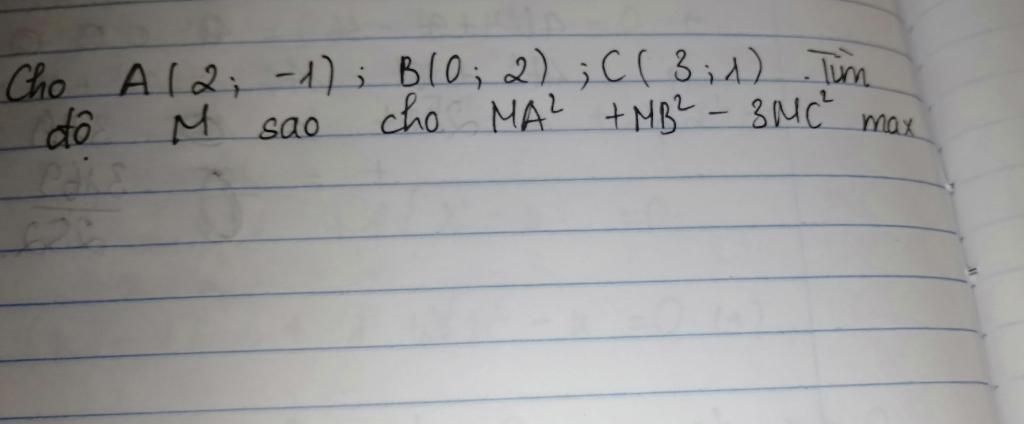 Cho A(2; -1); B(0; 2); C(3; 1). Tìm
độ M sao cho MA² + MB² - 3MC² max